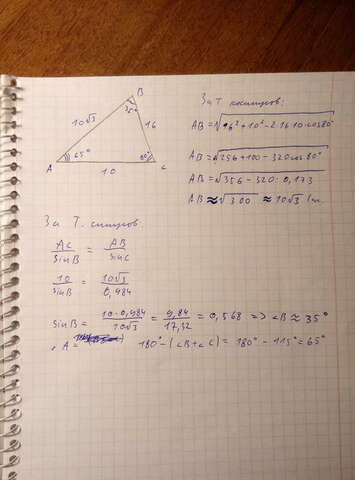 B
35°
10√3
16
65°
80°
A
10
C
За т. косинусов:
AB = √16² + 10² - 2·16·10·cos80°
AB = √256 + 100 - 320cos80°
AB = √356 - 320·0,173
AB ≈ √300 ≈ 10√3
За т. синусов
AC/sinB = AB/sinC
10/sinB = 10√3/0,984
sinB = 10·0,984/10√3 = 9,84/17,32 = 0,568 => ∠B ≈ 35°
∠A = 180° - (∠B + ∠C) = 180° - 115° = 65°